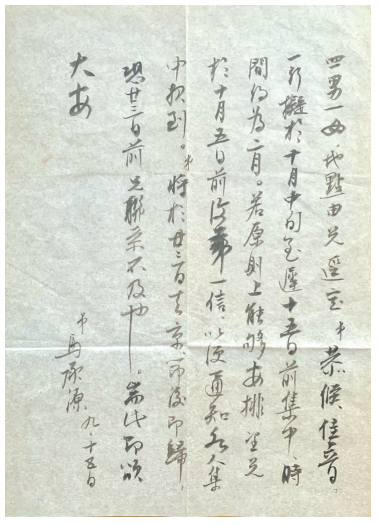 四男一女，地點由兄選定，弟恭候佳音。
一行擬於十月中旬至遲十五日前集中，時
間約為一月。若原則上能够安排望兄
於十月五日前後弟一信，以便通知各人集
中報到。弟將於廿三日去京，即後即歸，
恐廿三日前兄聯系不及也。耑此即頌
大安
弟馬承源 九、十五日